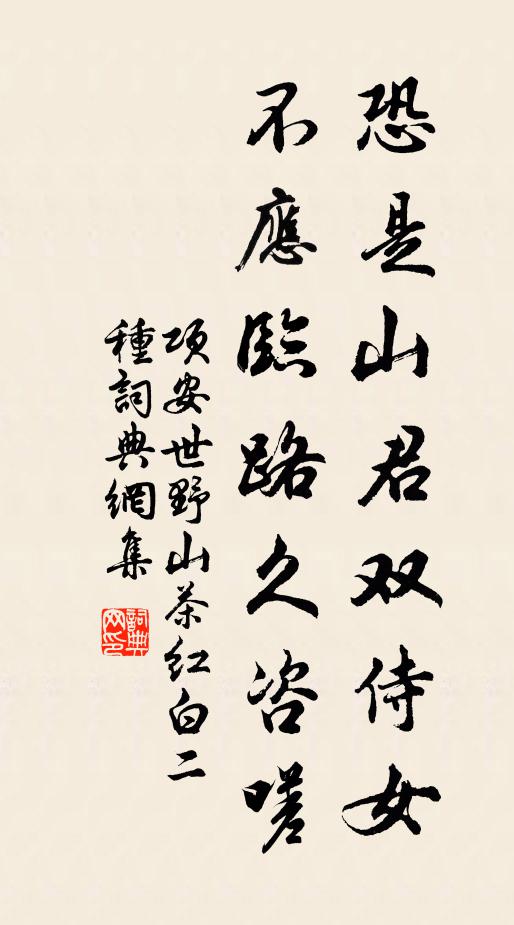 恐是山君双侍女
不應臨路久咨嗟
項安世野山茶紅白二
種詞典網集
詞典網印